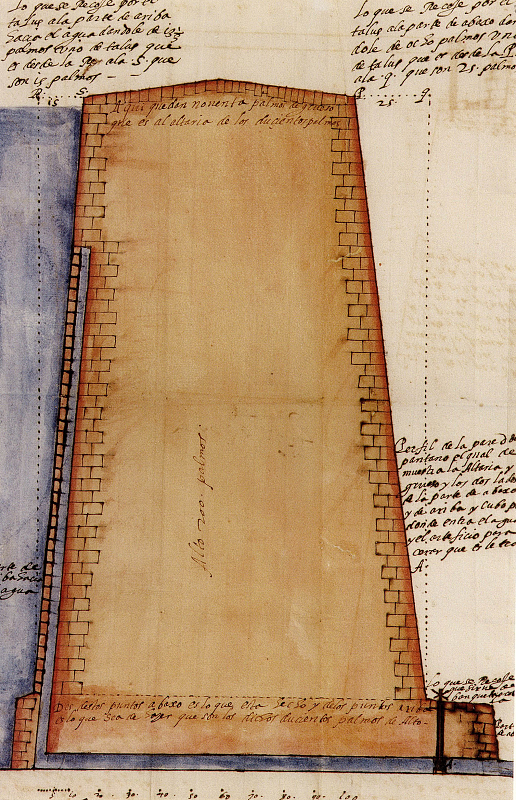 lo que se Recoje por el
talus ala parte de ariba
hacia el agua dandole de 13
palmos vno de talus que
es desde la R. ala S. que
son 15 palmos
R. 15 S.
lo que se Recoje por el
talus ala parte de abaxo dan
dole de ocho palmos vno
de talus que es desde la P.
ala q. que son 25. palmos
P. 25. q.
Aqui queden nouenta palmos de grueso
que es al altaria de los ducientos palmos
Alto 200. palmos
Perfil de la pared de
pantano el qual de
muestra la Altaria y
grueso y los dos lados
de la parte de abaxo
y de ariba y Cubo p
donde entra el agua
y el artificio para
correr que es letra
A.
agua
lo que se Recoje
que sirue
Desdestos puntos abaxo es lo que esta hecho y delos puntos ariba
es lo que sea de hazer que son los dichos ducientos palmos de Alto.
A.
5 10 20. 30. 40. 50 60 70. 80. 90. 100